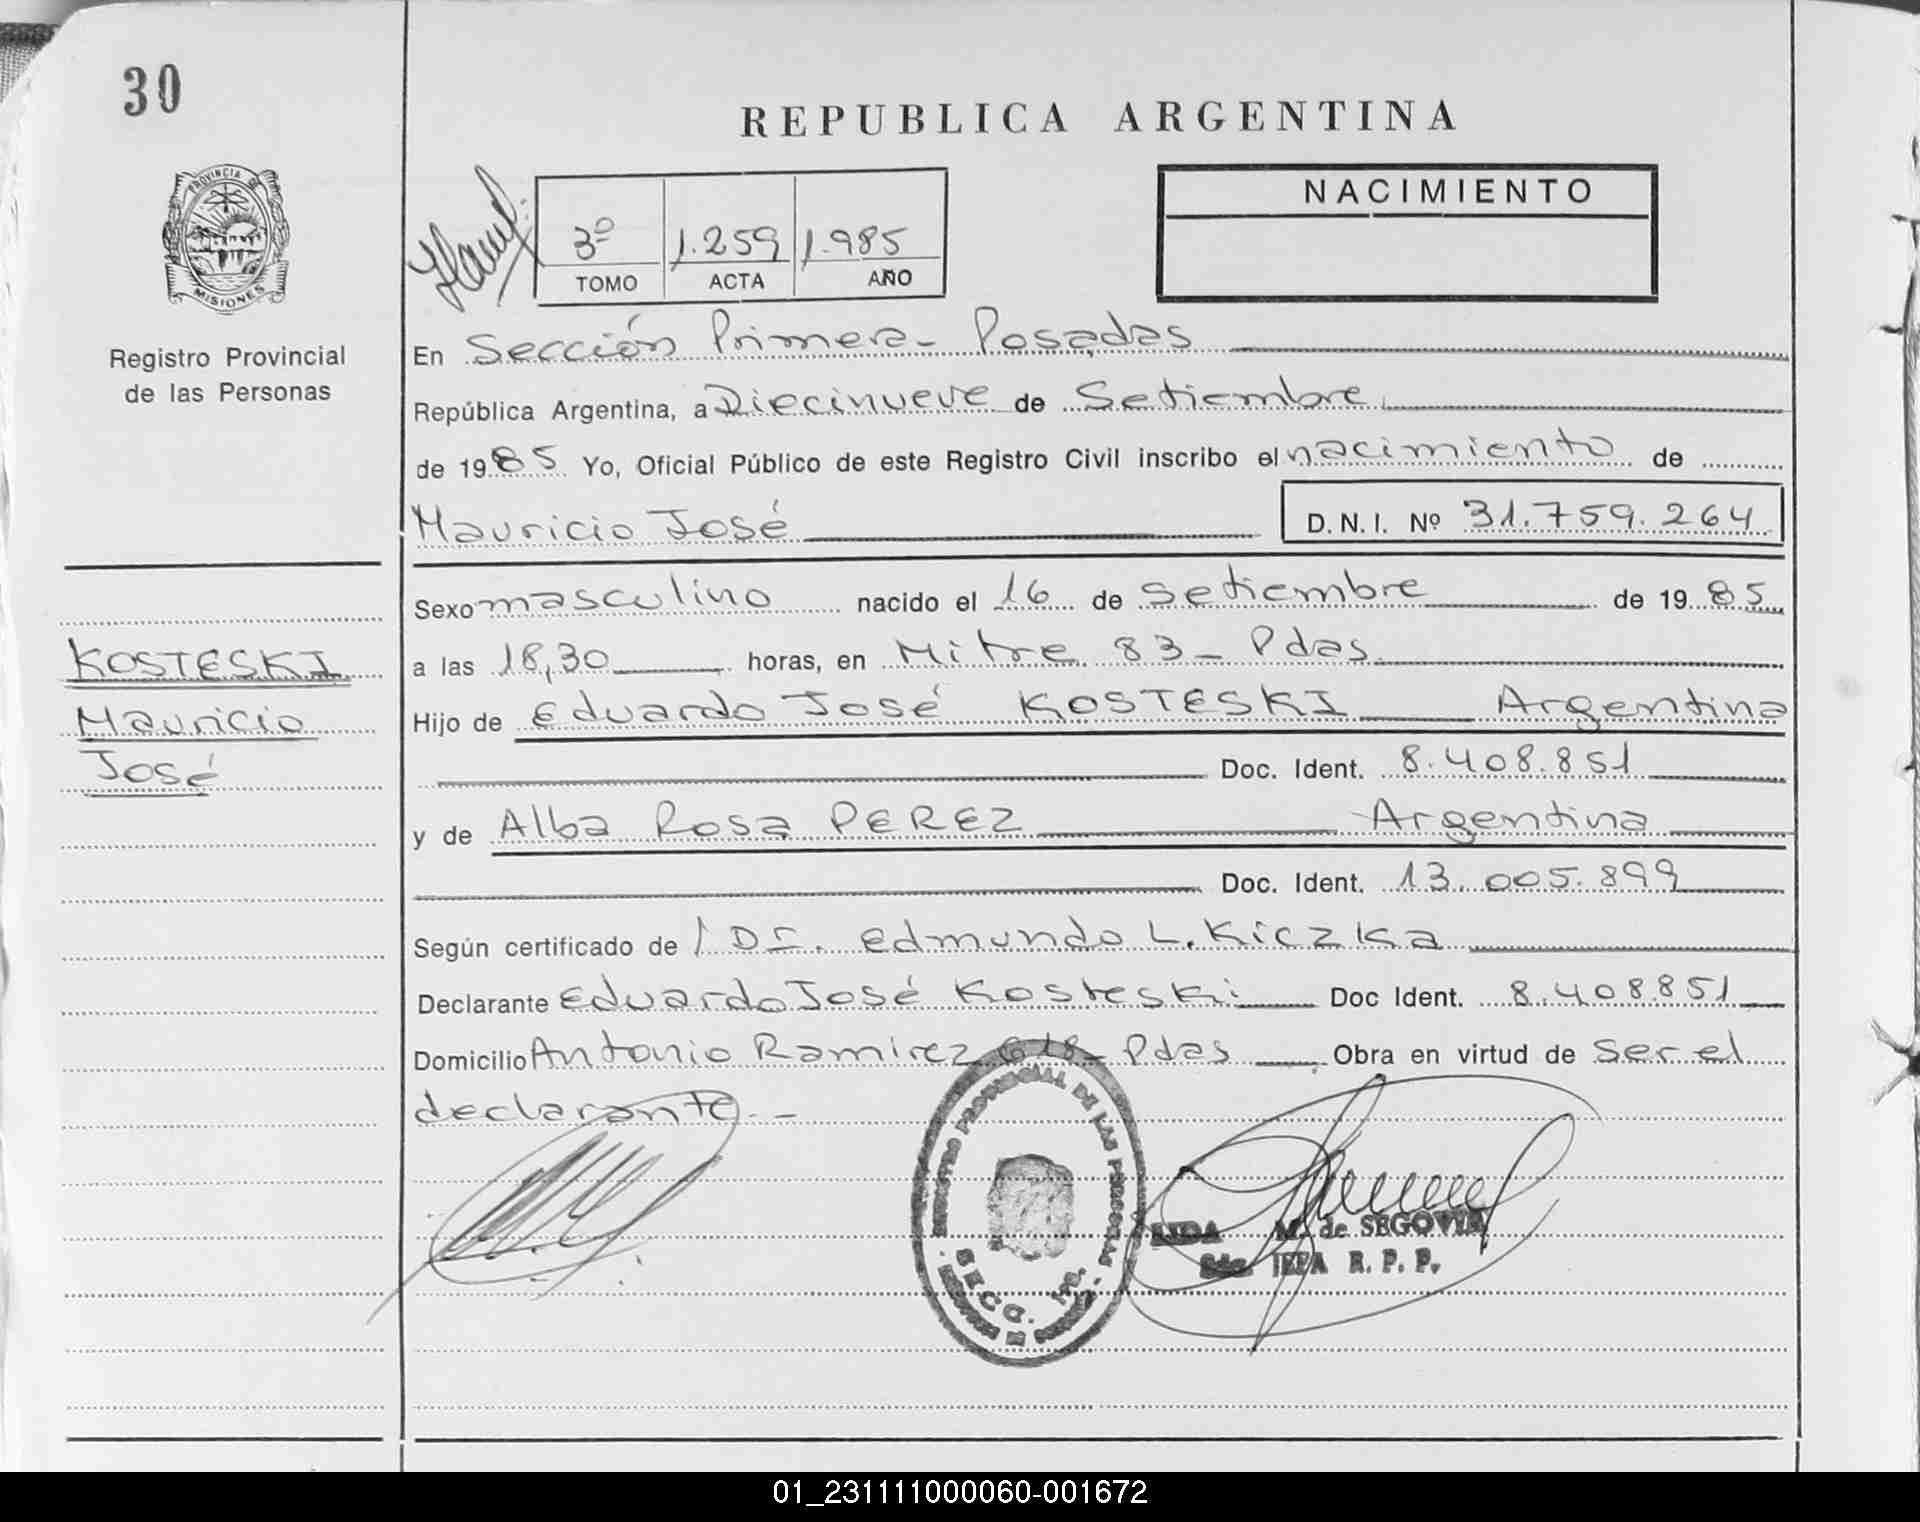 30
REPUBLICA ARGENTINA
PROVINCIA DE
MISIONES
Registro Provincial
de las Personas
3º 1.259 1.985
TOMO ACTA AÑO
NACIMIENTO
En Sección Primera - Posadas
República Argentina, a Diecinueve de Setiembre
de 1985 Yo, Oficial Público de este Registro Civil inscribo el nacimiento de
Mauricio José D.N.I. Nº 31.759.264
Sexo masculino nacido el 16 de Setiembre de 1985
a las 18,30 horas, en Mitre 83 - Pdas
KOSTESKI
Mauricio
José
Hijo de Eduardo José KOSTESKI Argentina
Doc. Ident. 8.408.851
y de Alba Rosa PEREZ Argentina
Doc. Ident. 13.005.899
Según certificado de Dr. Edmundo L. Kiczka
Declarante Eduardo José Kosteski Doc Ident. 8.408.851
Domicilio Antonio Ramirez 618 - Pdas Obra en virtud de ser el
declarante.-
REGISTRO PROVINCIAL DE LAS PERSONAS
SECC. 1ra.
LIDA M. de SEGOVIA
JEFA R. P. P.
01_231111000060-001672